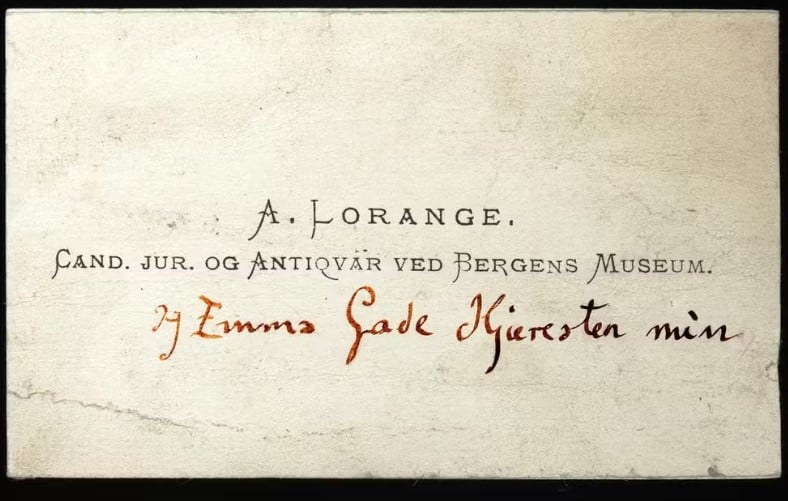 A. LORANGE.
CAND. JUR. OG ANTIQVÄR VED BERGENS MUSEUM.
og Emma Gade Hjæresten min